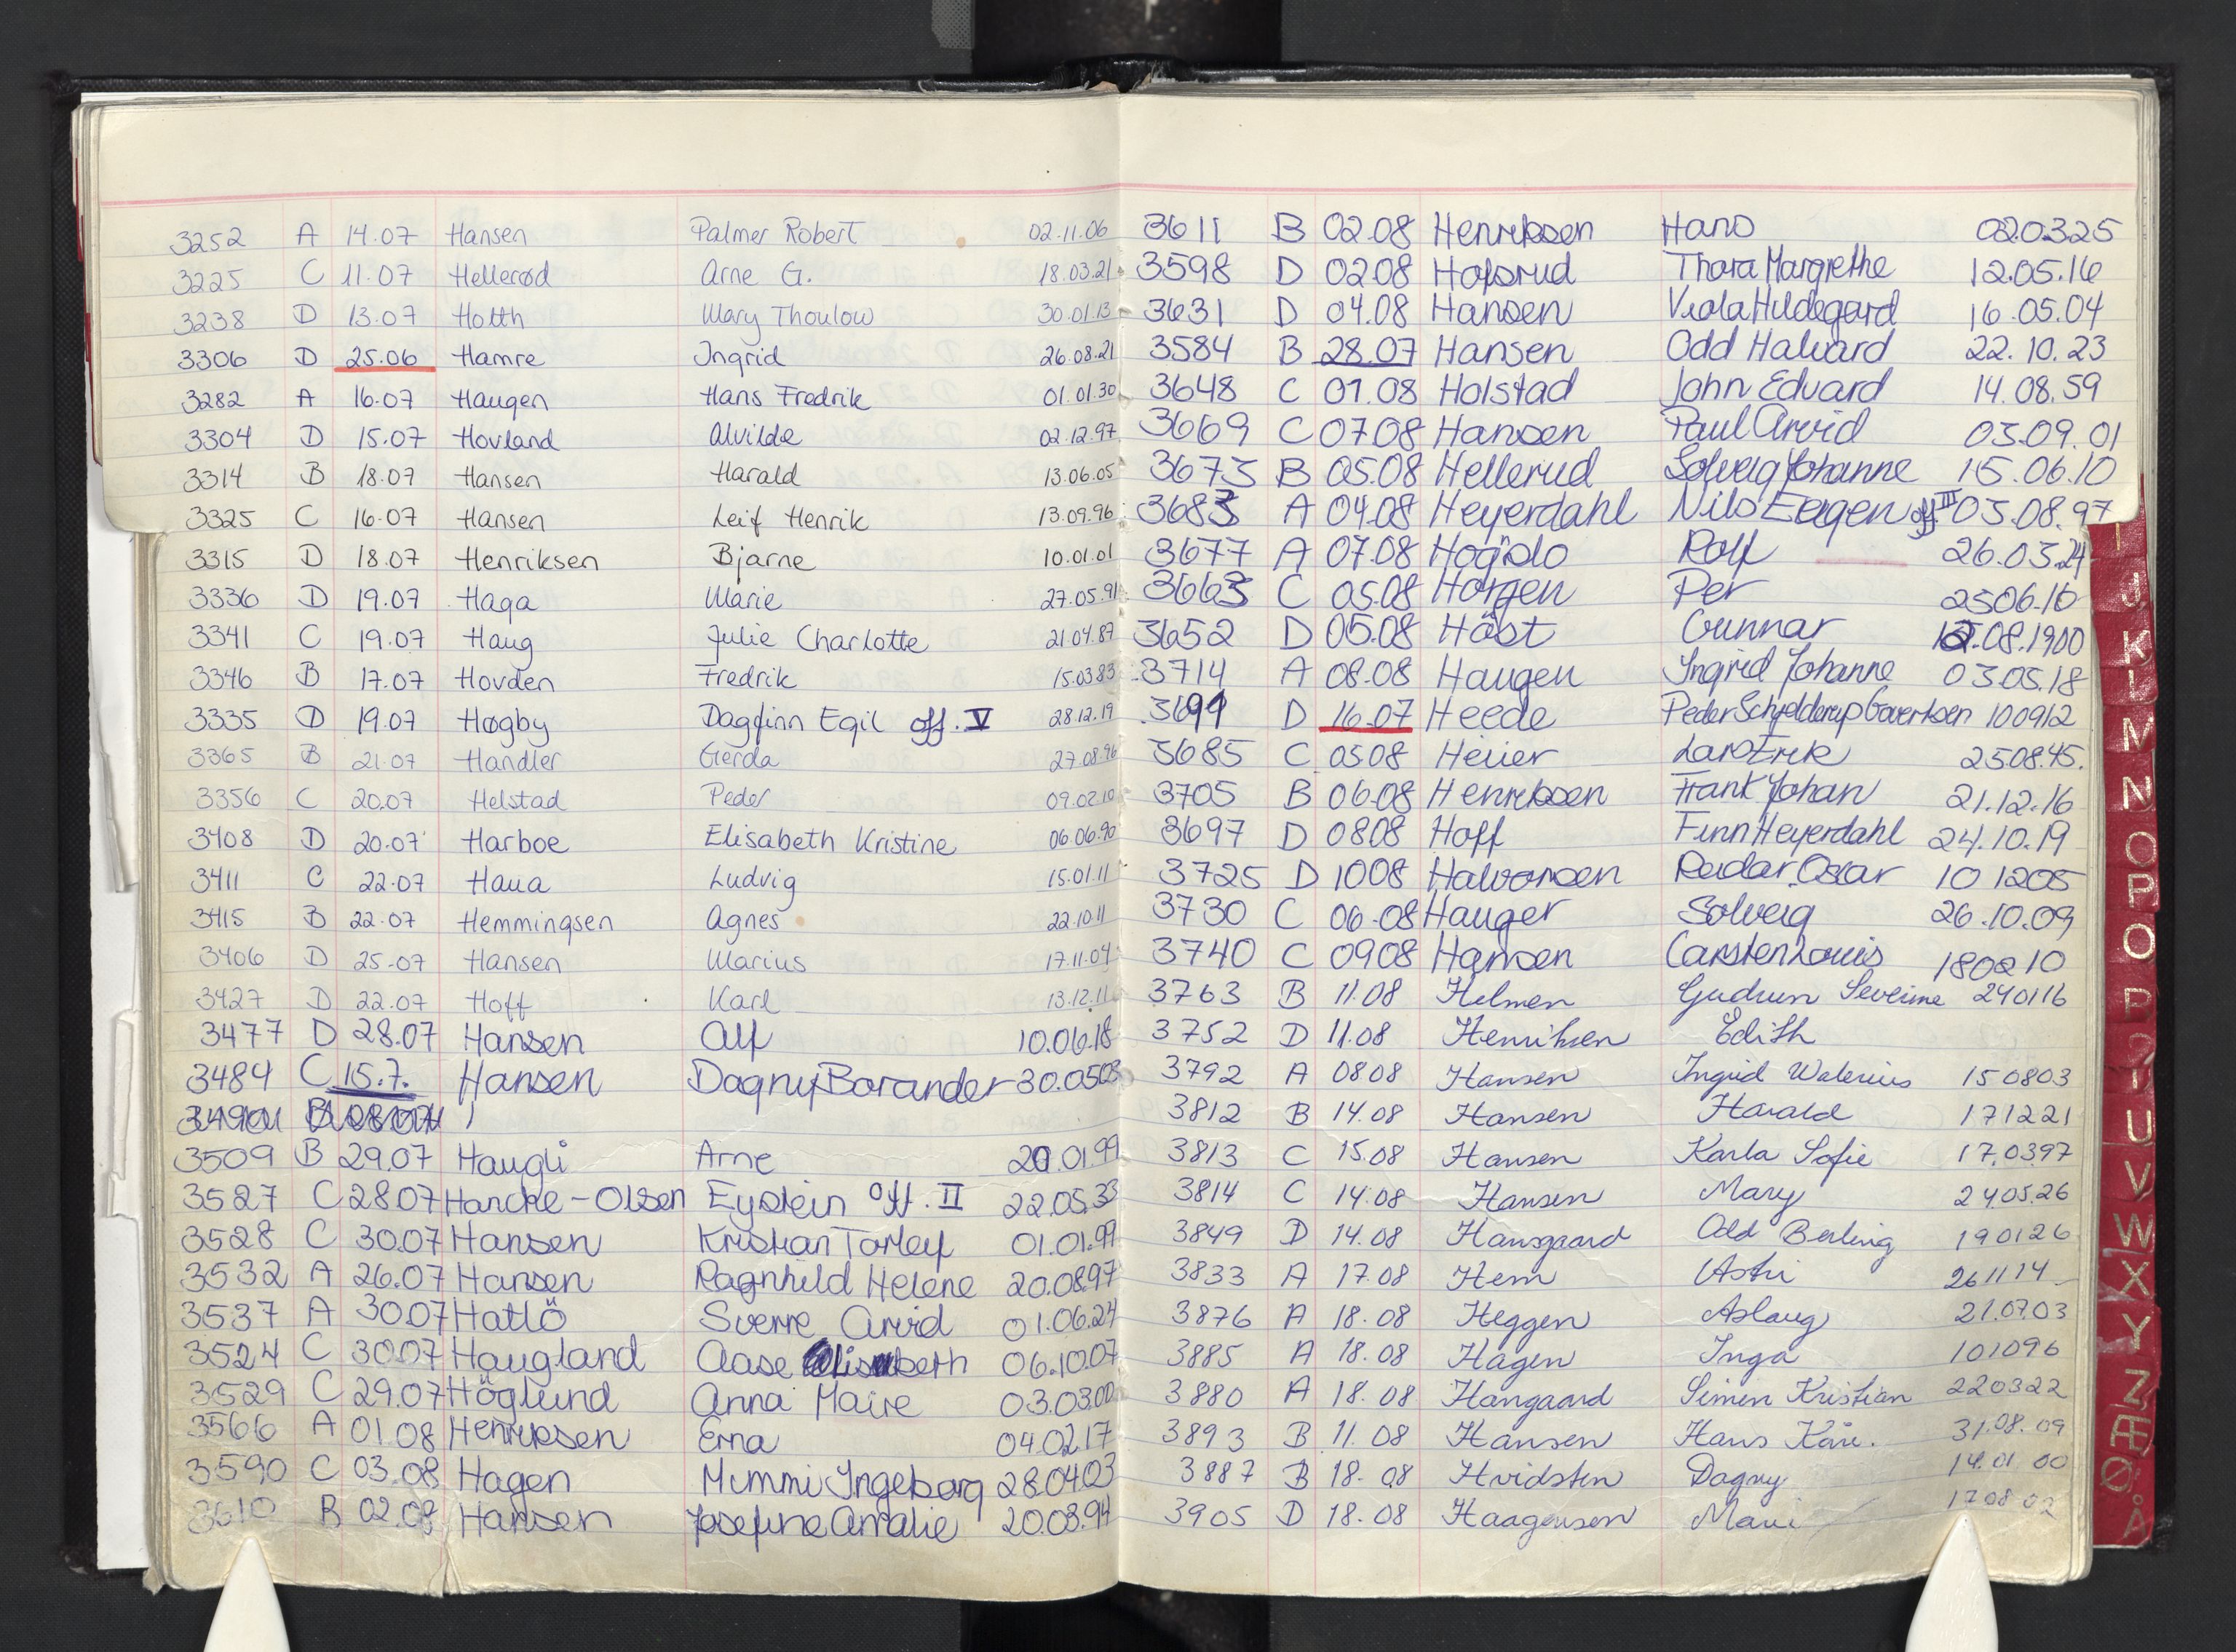 3252 A 14.07 Hansen Palmer Robert 02.11.06
3225 C 11.07 Hellerød Arne G. 18.03.21
3238 D 13.07 Hotth Mary Thoulow 30.01.13
3306 D 25.06 Hamre Ingrid 26.08.21
3282 A 16.07 Haugen Hans Fredrik 01.01.30
3304 D 15.07 Hovland Alvilde 02.12.97
3314 B 18.07 Hansen Harald 13.06.05
3325 C 16.07 Hansen Leif Henrik 13.09.96
3315 D 18.07 Henriksen Bjarne 10.01.01
3336 D 19.07 Haga Marie 27.05.91
3341 C 19.07 Haug Julie Charlotte 21.04.87
3346 B 17.07 Hovden Fredrik 15.03.83
3335 D 19.07 Høgby Dagfinn Egil off. V 28.12.19
3365 B 21.07 Handler Gerda 27.08.96
3356 C 20.07 Helstad Peder 09.02.10
3408 D 20.07 Harboe Elisabeth Kristine 06.06.90
3411 C 22.07 Haua Ludvig 15.01.11
3415 B 22.07 Hemmingsen Agnes 22.10.11
3406 D 25.07 Hansen Marius 17.11.04
3427 D 22.07 Hoff Karl 13.12.11
3477 D 28.07 Hansen Alf 10.06.18
3484 C 15.7. Hansen Dagny Borander 30.05.03
3509 B 29.07 Haugli Arne 20.01.99
3527 C 28.07 Hancke-Olsen Eystein Off. II 22.05.33
3528 C 30.07 Hansen Kristian Torleif 01.01.99
3532 A 26.07 Hansen Ragnhild Helene 20.08.97
3537 A 30.07 Hatlö Sverre Arvid 01.06.24
3524 C 30.07 Haugland Aase Elisabeth 06.10.07
3529 C 29.07 Höglund Anna Maire 03.03.00
3566 A 01.08 Henriksen Erna 04.02.17
3590 C 03.08 Hagen Mimmi Ingeborg 28.04.03
3610 B 02.08 Hansen Josefine Amalie 20.03.94
3611 B 02.08 Henriksen Hans 02.03.25
3598 D 02.08 Hofsrud Thora Margrethe 12.05.16
3631 D 04.08 Hansen Viola Hildegard 16.05.04
3584 B 28.07 Hansen Odd Halvard 22.10.23
3648 C 01.08 Holstad John Edvard 14.08.59
3669 C 07.08 Hansen Paul Arvid 03.09.01
3673 B 05.08 Hellerud Solveig Johanne 15.06.10
3683 A 04.08 Heyerdahl Nils Eegen off III 03.08.97
3677 A 07.08 Hogslo Rolf 26.03.24
3663 C 05.08 Horgen Per 25.06.16
3652 D 05.08 Häst Gunnar .08.1900
3714 A 08.08 Haugen Ingrid Johanne 03.05.18
3691 D 16.07 Heede Peder Schjelderup Goverksen 100912
3685 C 05.08 Heier Lars Erik 25.08.45.
3705 B 06.08 Henriksen Frank Johan 21.12.16
3697 D 08.08 Hoff Finn Heyerdahl 24.10.19
3725 D 10 08 Halvorsen Reidar Oscar 10 1205
3730 C 06.08 Hauger Solveig 26.10.09
3740 C 09 08 Hansen Carsten Louis 180210
3763 B 11.08 Helmen Gudrun Severine 240116
3752 D 11.08 Henriksen Edith
3792 A 08 08 Hansen Ingrid Walerius 150803
3812 B 14.08 Hansen Harald 171221
3813 C 15.08 Hansen Karla Sofie 17.0397
3814 C 14.08 Hansen Mary 24.05.26
3849 D 14.08 Hansgaard Odd Berling 190126
3833 A 17.08 Hem Astri 261114
3876 A 18.08 Heggen Aslaug 21.07.03
3885 A 18.08 Hagen Inga 101096
3880 A 18.08 Hangaard Simen Kristian 220322
3893 B 11.08 Hansen Hans Kåre. 31.08.09
3887 B 18.08 Hvidsten Dagny 14.01.00
3905 D 18.08 Haagensen Marie 17 08 02
I
J
K
L
M
N
O
P
O
P
U
V
W
X
Y
Z
Æ
Ø
Å